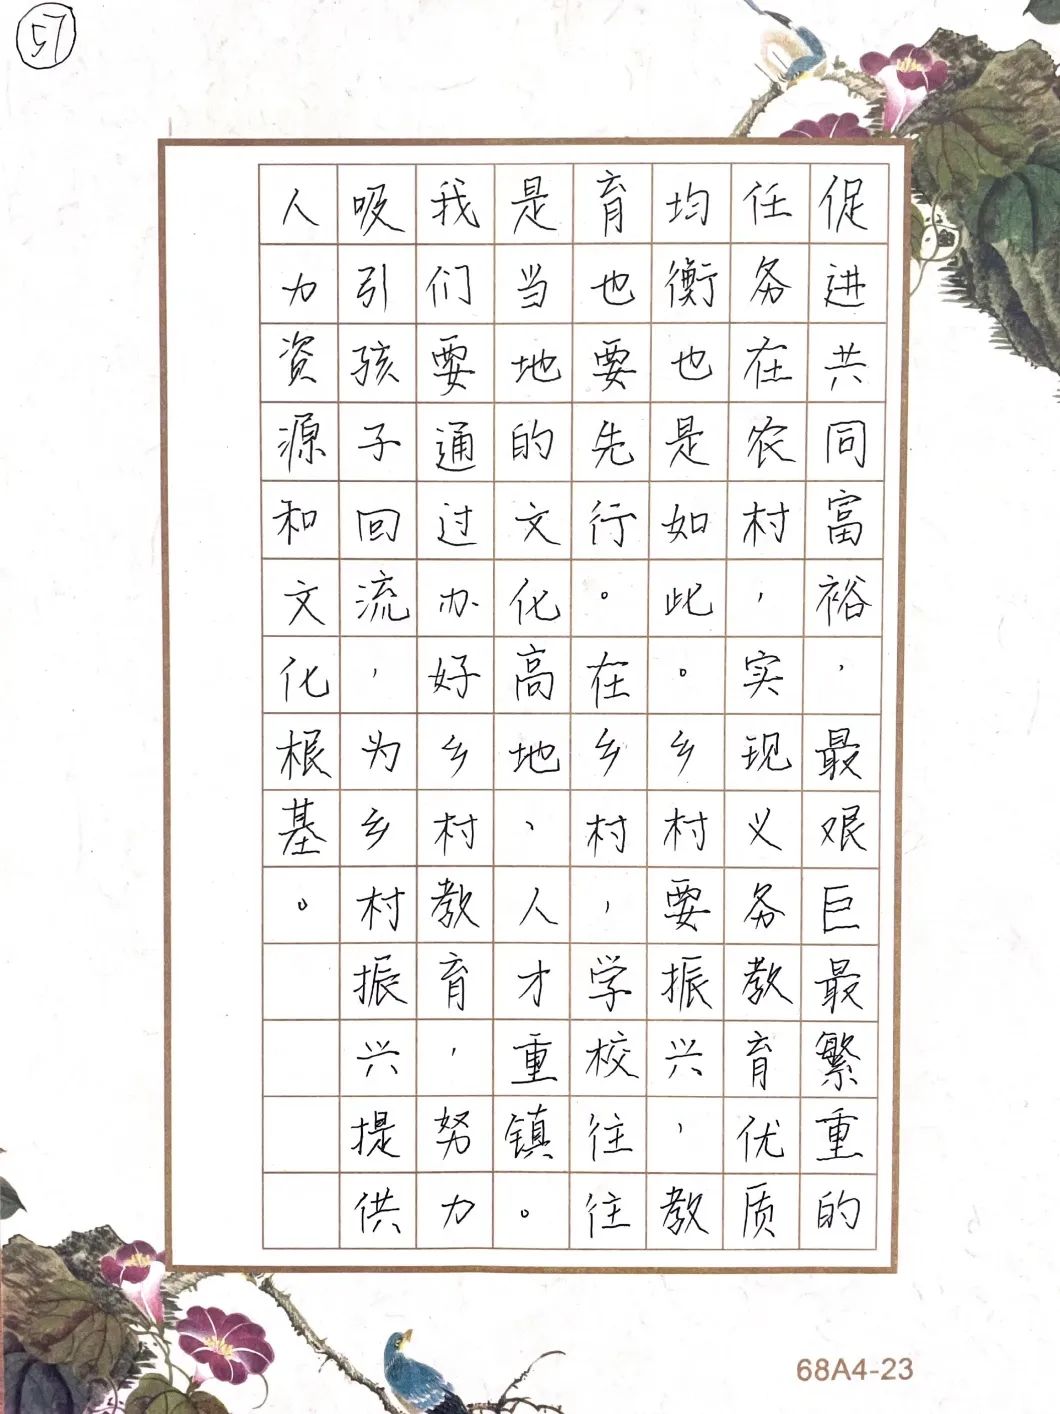 57
促进共同富裕，最艰巨最繁重的
任务在农村，实现义务教育优质
均衡也是如此。乡村要振兴，教
育也要先行。在乡村，学校往往
是当地的文化高地、人才重镇。
我们要通过办好乡村教育，努力
吸引孩子回流，为乡村振兴提供
人力资源和文化根基。
68A4-23